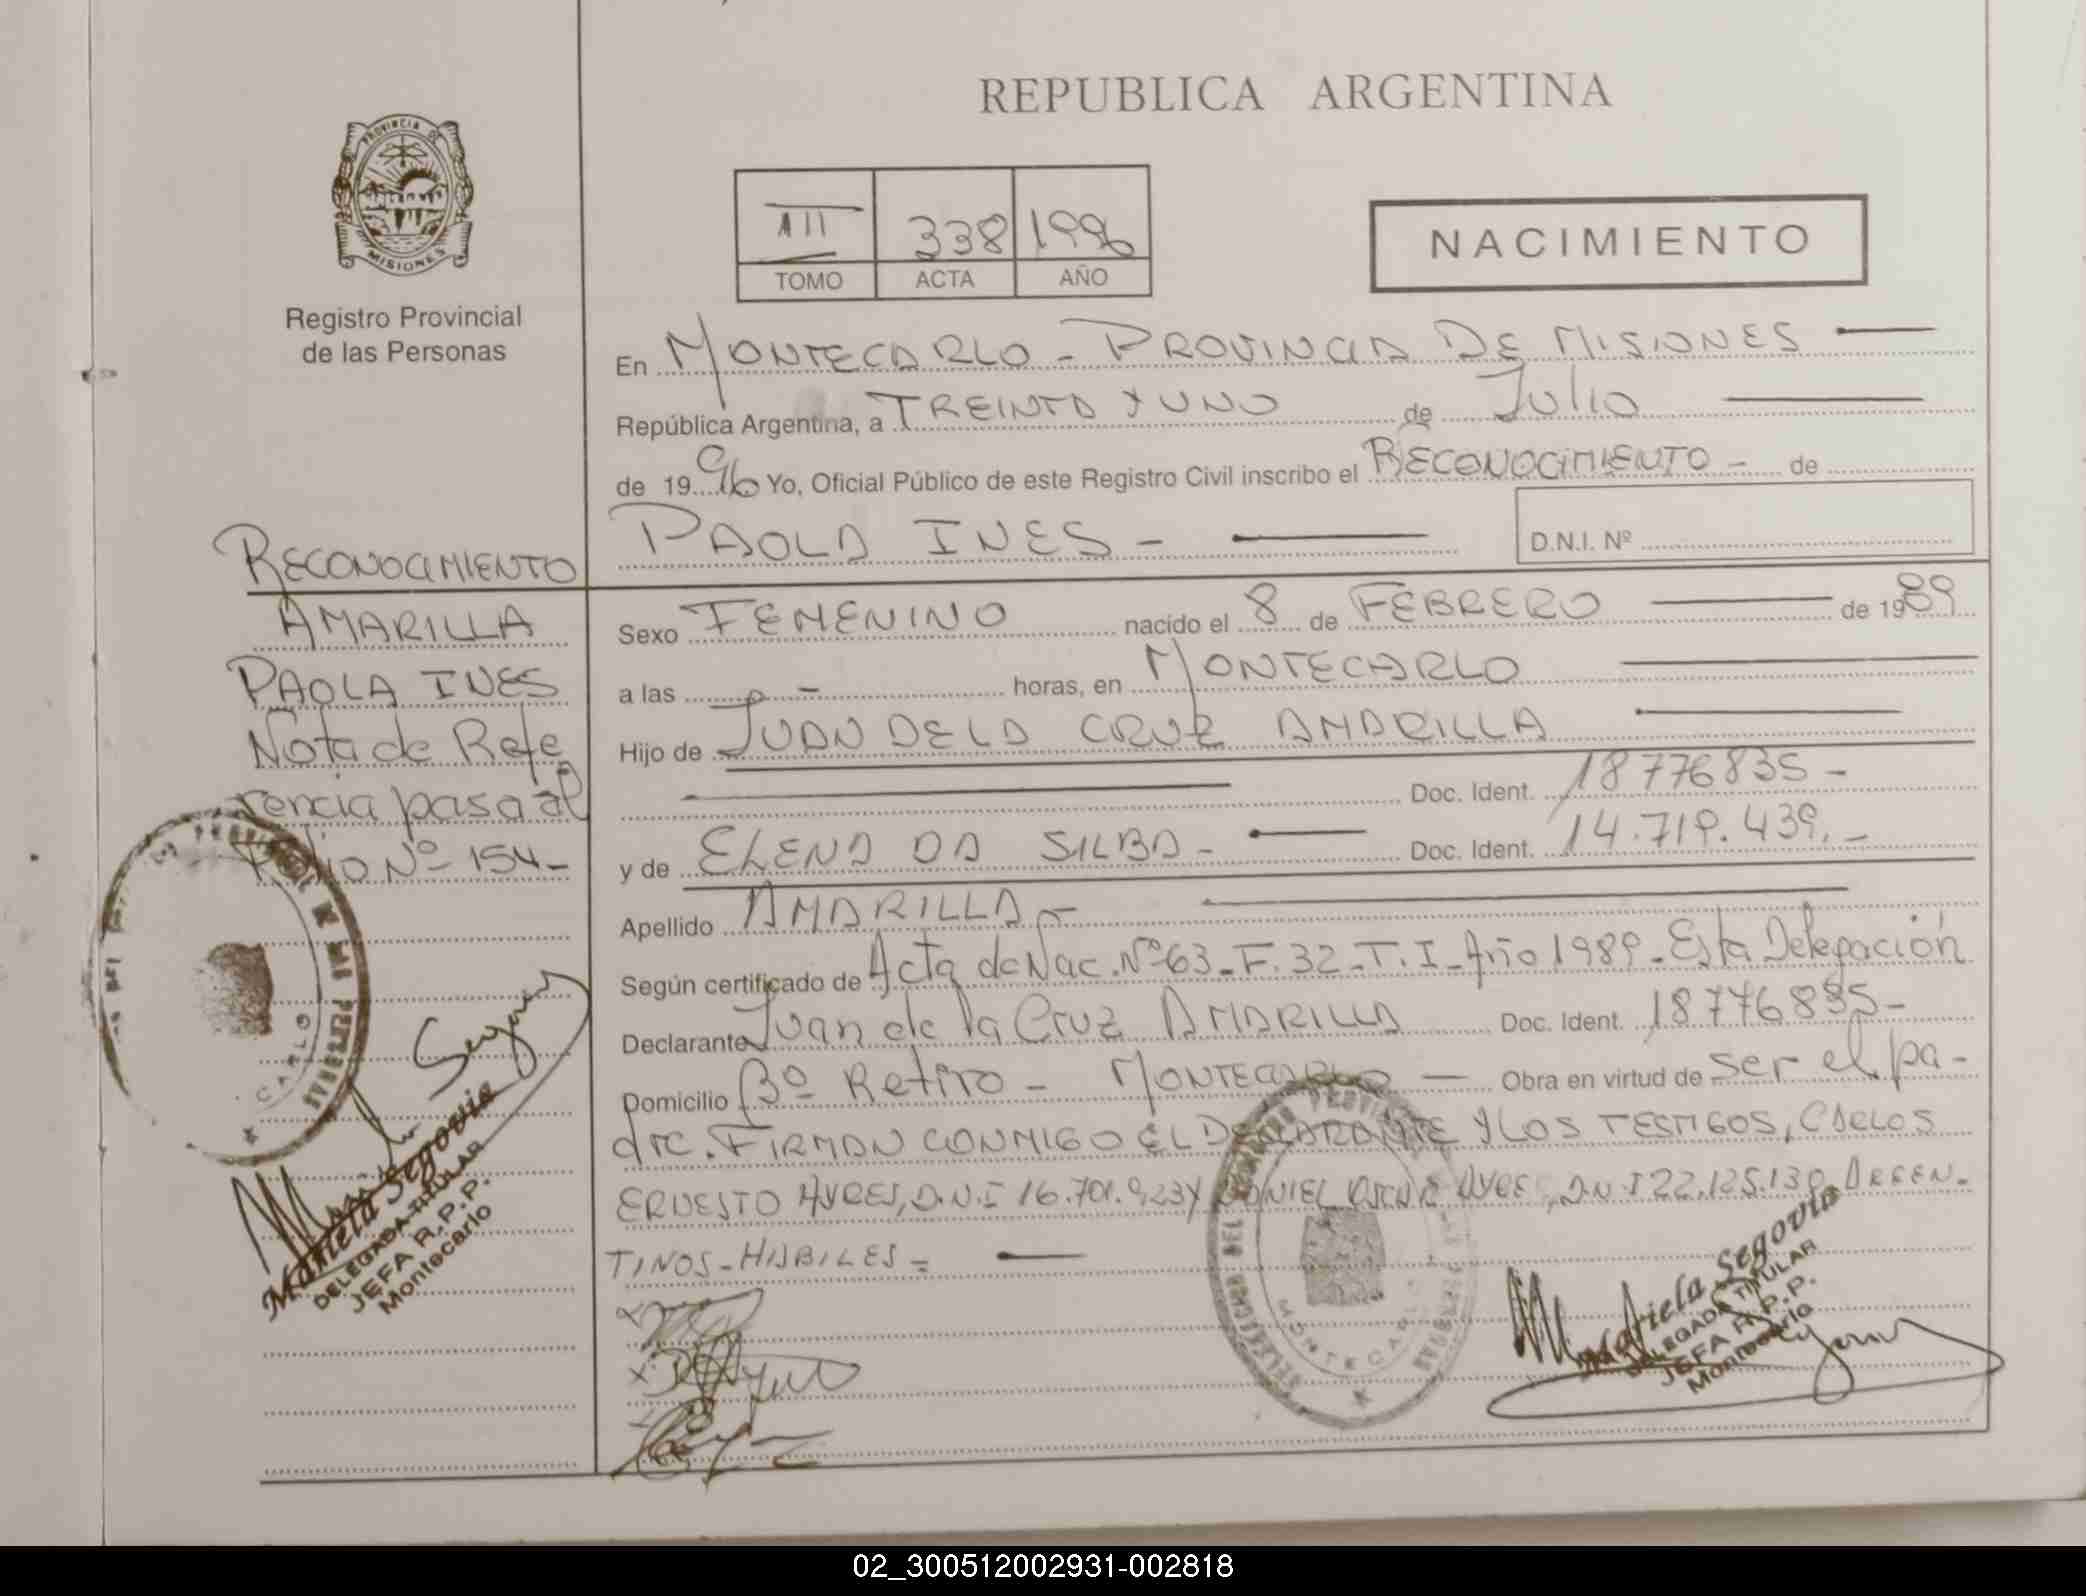 REPUBLICA ARGENTINA
PROVINCIA DE
MISIONES
Registro Provincial
de las Personas
338 1996
TOMO ACTA AÑO
NACIMIENTO
En MONTECARLO - PROVINCIA DE MISIONES
República Argentina, a TREINTA Y UNO de Julio
de 1996 Yo, Oficial Público de este Registro Civil inscribo el RECONOCIMIENTO - de
PAOLA INES -
D.N.I. Nº
RECONOCIMIENTO
AMARILLA
PAOLA INES
Nota de Refe
rencia pasa al
Folio Nº 154-
Sexo FEMENINO nacido el 8 de FEBRERO de 1989
a las - horas, en MONTECARLO
Hijo de JUAN DE LA CRUZ AMARILLA
Doc. Ident. 18776835-
y de ELENA DA SILBA - Doc. Ident. 14.719.439.-
Apellido AMARILLA -
Según certificado de Acta de Nac. Nº 63 - F. 32 - T. I - Año 1989 - Esta Delegación
Declarante Juan de la Cruz AMARILLA Doc. Ident. 18776835-
Domicilio Bº Retiro - MONTECARLO - Obra en virtud de ser el pa-
dre. FIRMAN CONMIGO EL DECLARANTE Y LOS TESTIGOS, CARLOS
ERNESTO AYRES, D.N.I 16.701.923 Y DANIEL OSCAR AYRES, D.N.I 22.125.139, ARGEN-
TINOS - HABILES =
Mariela Segovia
DELEGADA TITULAR
JEFA R.P.P.
Montecarlo
MONTECARLO
Mariela Segovia
DELEGADA TITULAR
JEFA R.P.P.
Montecarlo
02_300512002931-002818